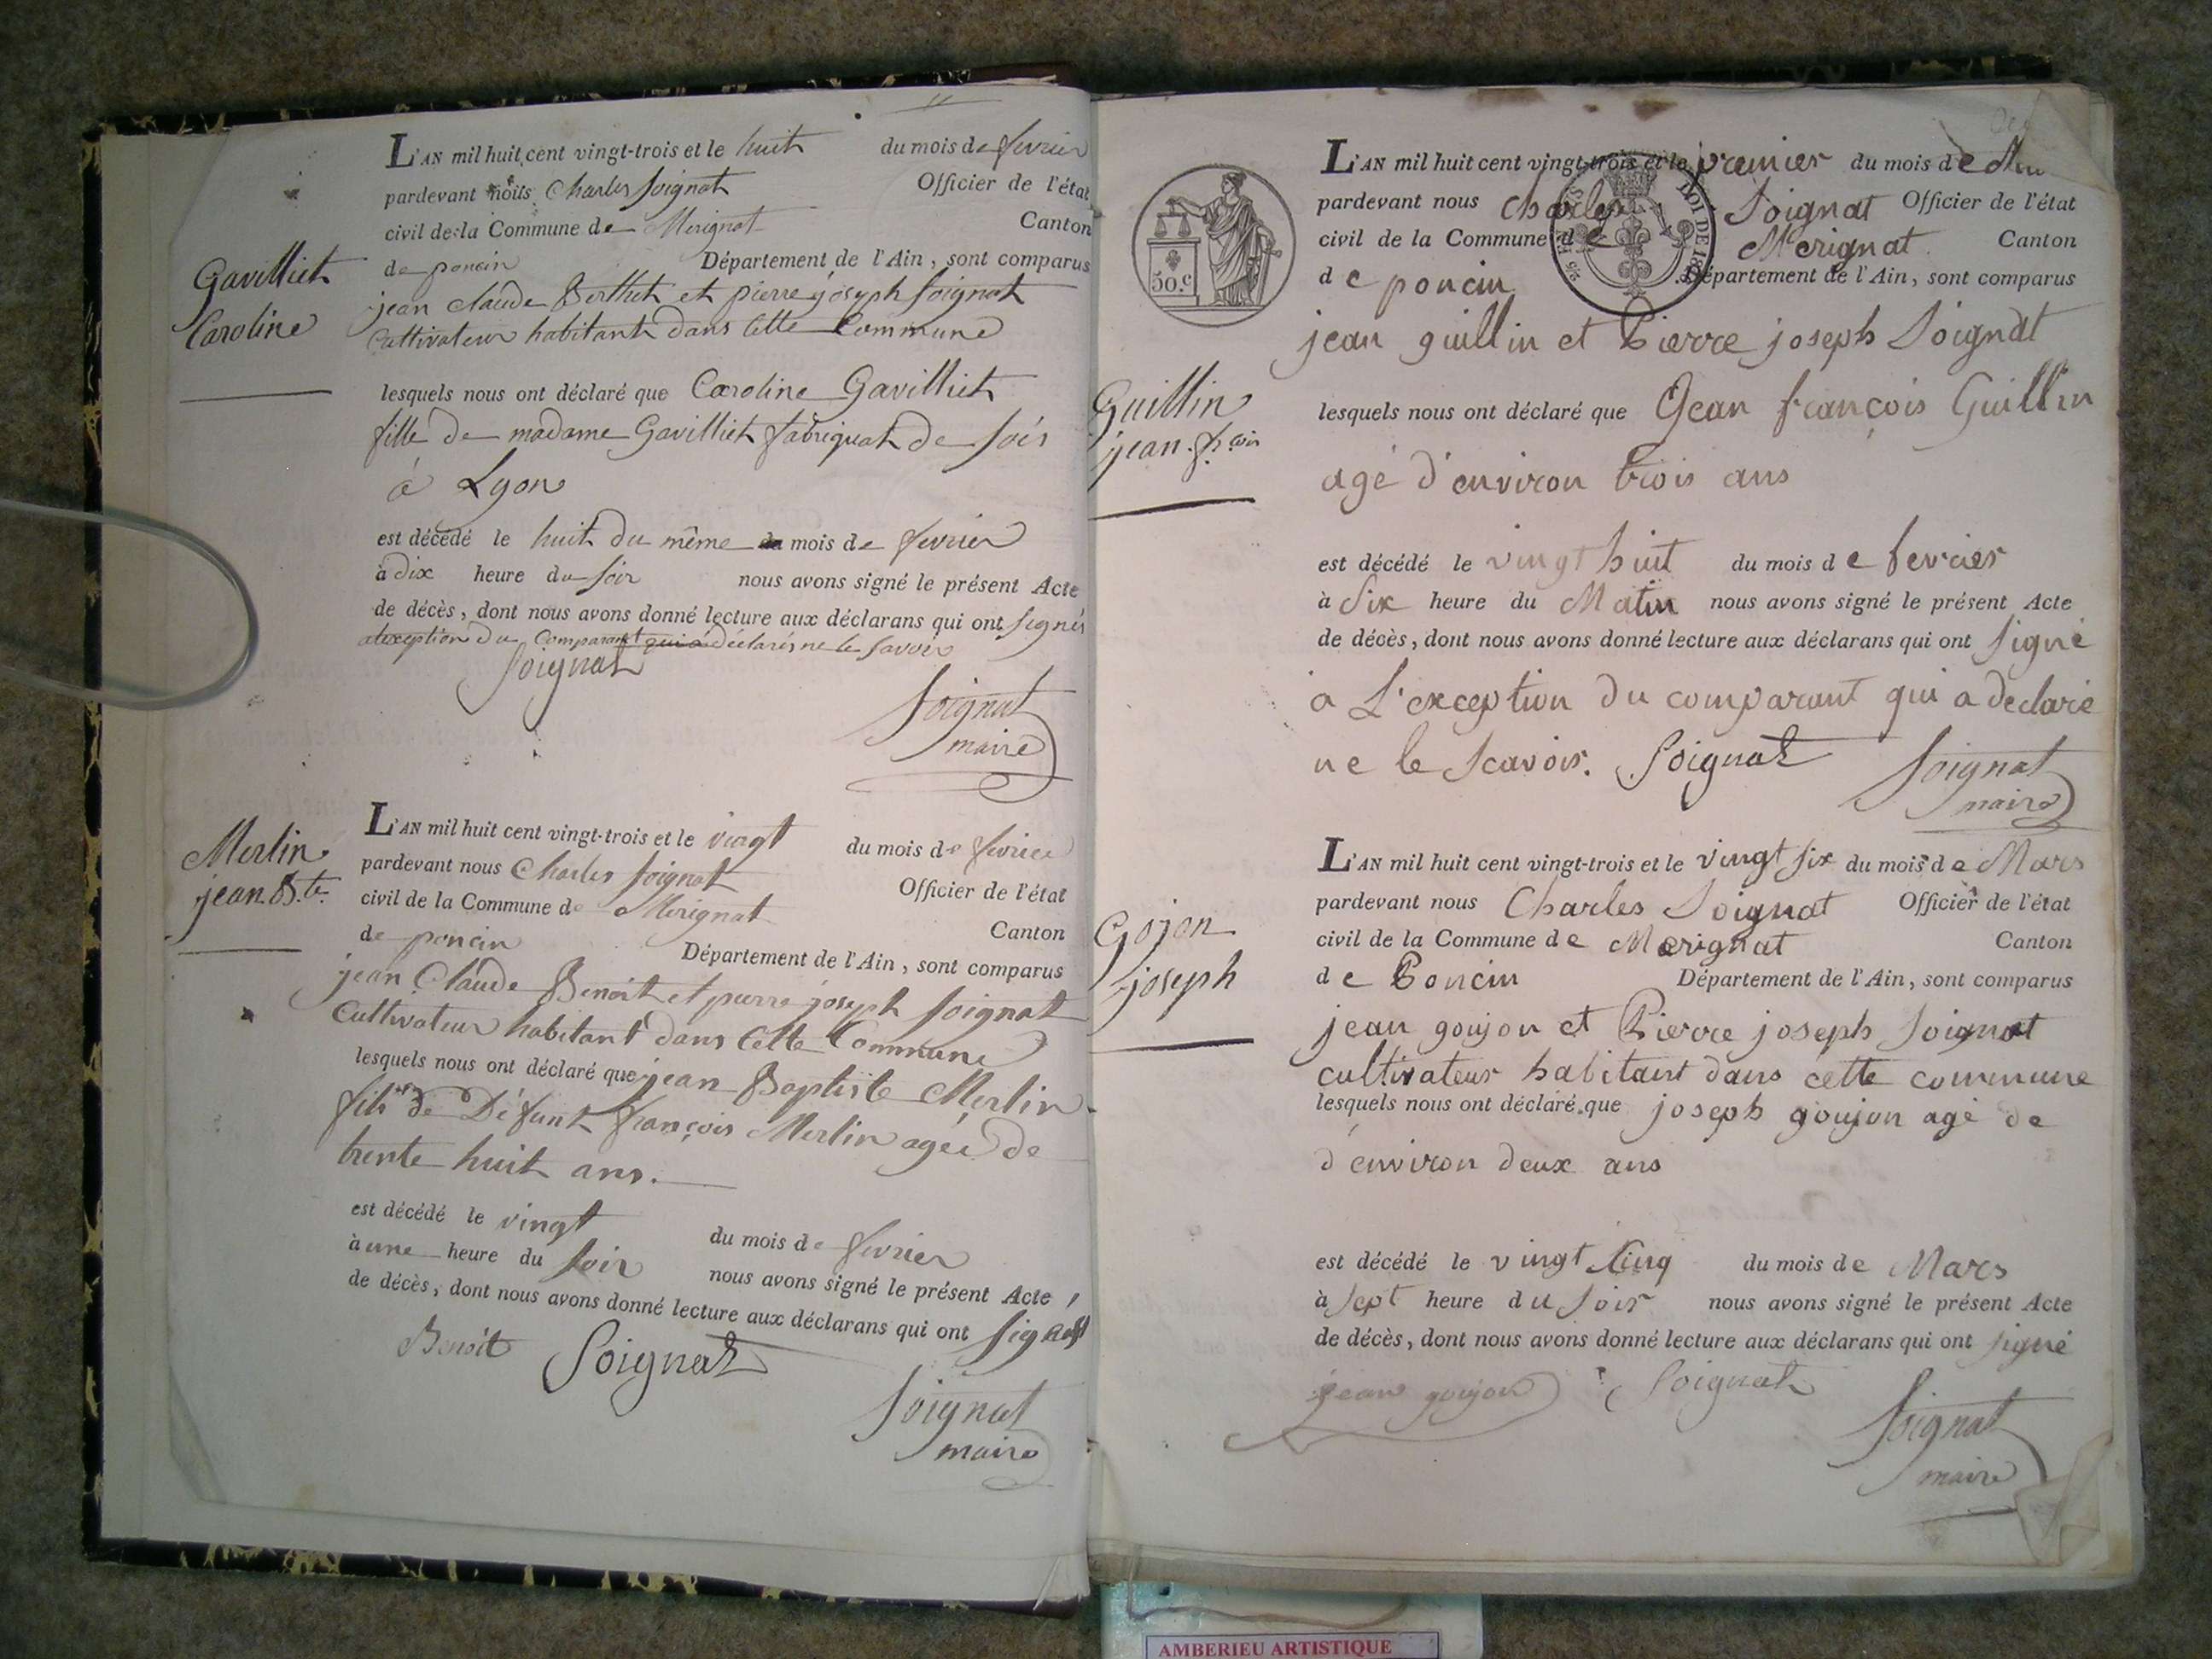 L'AN mil huit cent vingt-trois et le huit du mois de fevrier
pardevant nous Charles Soignat Officier de l'état
civil de la Commune de Merignat Canton
de poncin Département de l'Ain, sont comparus
jean claude Berthet et pierre joseph Soignat
Cultivateur habitant dans Cette Commune
Gavilliet
Caroline
lesquels nous ont déclaré que Caroline Gavilliet
fille de madame Gavilliet fabriquat de soïs
à Lyon
est décédé le huit du même mois de fevrier
à dix heure du soir nous avons signé le présent Acte
de décès, dont nous avons donné lecture aux déclarans qui ont signés
du Comparant qui a déclarés ne le savoir
Soignat
Soignat
maire
Merlin
jean B.te
L'AN mil huit cent vingt-trois et le vingt du mois de fevrier
pardevant nous Charles Soignat Officier de l'état
civil de la Commune de Merignat Canton
de poncin Département de l'Ain, sont comparus
jean Claude Benoit et pierre joseph Soignat
Cultivateur habitant dans Cette Commune
lesquels nous ont déclaré que jean Baptiste Merlin
fils de Défunt françois Merlin agée de
trente huit ans.
est décédé le vingt du mois de fevrier
à une heure du soir nous avons signé le présent Acte
de décès, dont nous avons donné lecture aux déclarans qui ont
Benoit Soignat
Soignat
maire
50.c
L'AN mil huit cent vingt-trois et le premier du mois de
pardevant nous Charles Soignat Officier de l'état
civil de la Commune de Merignat Canton
de poncin Département de l'Ain, sont comparus
jean guillin et Pierre joseph Soignat
Guillin
jean f.çois
lesquels nous ont déclaré que Jean françois Guillin
agé d'environ trois ans
est décédé le vingt huit du mois de fevrier
à Six heure du Matin nous avons signé le présent Acte
de décès, dont nous avons donné lecture aux déclarans qui ont signé
a L'exception du comparant qui a declaré
ne le Scavoir. Soignat Soignat
maire
L'AN mil huit cent vingt-trois et le vingt six du mois de Mars
pardevant nous Charles Soignat Officier de l'état
civil de la Commune de Merignat Canton
de Poncin Département de l'Ain, sont comparus
Gojon
joseph
jean goujon et Pierre joseph Soignat
cultivateur habitant dans cette commune
lesquels nous ont déclaré que joseph goujon agé de
d'environ deux ans
est décédé le vingt cinq du mois de Mars
à sept heure du soir nous avons signé le présent Acte
de décès, dont nous avons donné lecture aux déclarans qui ont signé
jean goujon Soignat
Soignat
maire
AMBERIEU ARTISTIQUE